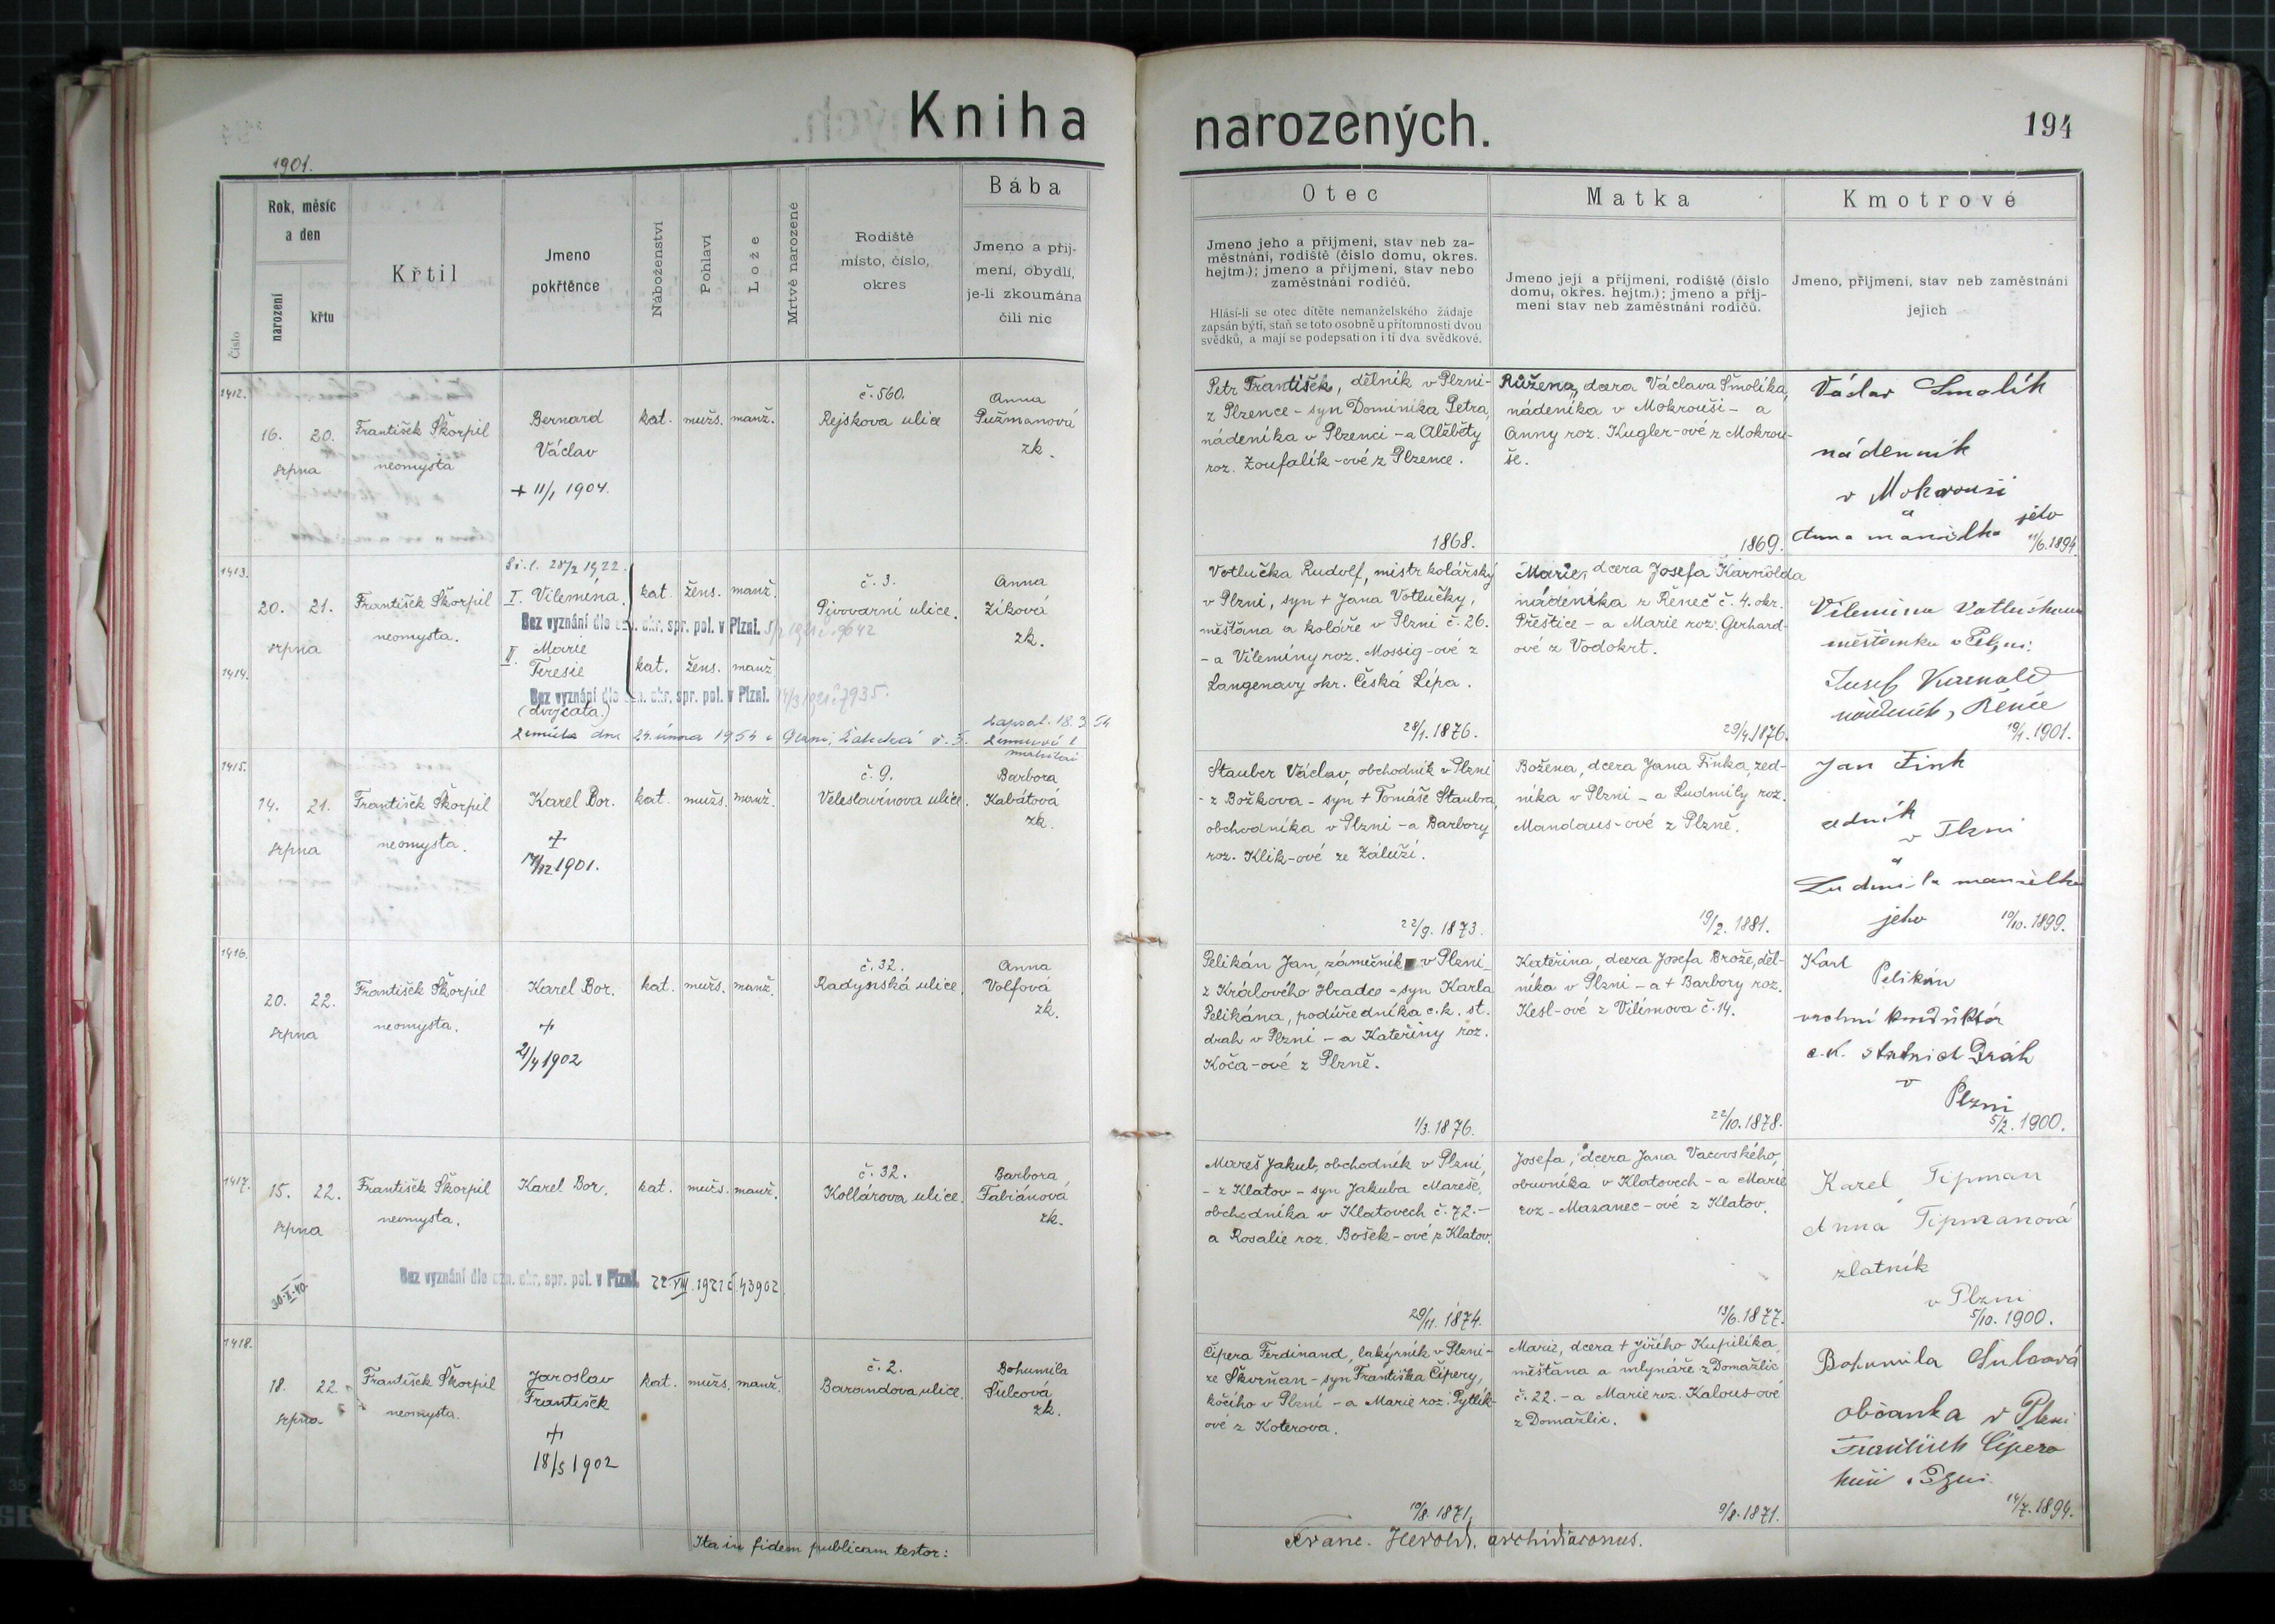 Kniha
narozených.
194
1901.
Číslo
Rok, měsíc
a den
narození
křtu
Křtil
Jmeno
pokřtěnce
Náboženství
Pohlaví
Lože
Mrtvě narozené
Rodiště
místo, číslo,
okres
Bába
Jmeno a příj-
mení, obydlí,
je-li zkoumána
čili nic
Otec
Jmeno jeho a příjmení, stav neb za-
městnání, rodiště (číslo domu, okres.
hejtm.); jmeno a příjmení, stav nebo
zaměstnání rodičů.
Hlásí-li se otec dítěte nemanželského žádaje
zapsán býti, staň se toto osobně u přítomnosti dvou
svědků, a mají se podepsati on i ti dva svědkové.
Matka
Jmeno její a příjmení, rodiště (číslo
domu, okres. hejtm.); jmeno a příj-
mení stav neb zaměstnání rodičů.
Kmotrové
Jmeno, příjmení, stav neb zaměstnání
jejich
1412.
16. 20.
srpna
František Škorpil
neomysta
Bernard
Václav
+ 11/1 1904.
kat. mužs. manž.
č. 560.
Rejskova ulice
Anna
Pužmanová
zk.
Petr František, dělník v Plzni-
z Plzence - syn Dominika Petra,
nádeníka v Plzenci - a Alžběty
roz. Zoufalík-ové z Plzence.
1868.
Růžena, dcera Václava Smolíka,
nádeníka v Mokrouši - a
Anny roz. Kugler-ové z Mokrou-
še.
1869.
Václav Smolík
nádenník
v Mokrouši
a
Anna manželka jeho
11/6.1894.
1413.
20. 21.
srpna
František Škorpil
neomysta.
28/2 1922.
I. Vilemína
kat. žens. manž.
Bez vyznání dle ozn. okr. spr. pol. v Plzni.
II. Marie
Teresie
1414.
kat. žens. manž
Bez vyznání dle ozn. okr. spr. pol. v Plzni.
(dvojčata.)
č. 3.
Pivovarní ulice.
Anna
Zíková
zk.
Zemřela dne 24. února 1954 v Plzni,
Zapsal. 18. 3. 54
Votlučka Rudolf, mistr kolářský
v Plzni, syn + Jana Votlučky,
měšťana a koláře v Plzni č. 26.
- a Vilemíny roz. Mossig-ové z
Langenavy okr. Česká Lípa.
28/1. 1876.
Marie, dcera Josefa Karnolda
nádeníka z Řeneč č. 4. okr.
Přeštice - a Marie roz. Gerhard-
ové z Vodokrt.
29/4 1876.
Vilemina
měšťanka v Plzni.
Josef Karnold
nádeník, Řenče
19/1. 1901.
1415.
14. 21.
srpna
František Škorpil
neomysta.
Karel Bor.
+
1901.
kat. mužs. manž.
č. 9.
Veleslavínova ulice.
Barbora
Kabátová
zk.
Stauber Václav, obchodník v Plzni
- z Božkova - syn + Tomáše Staubra,
obchodníka v Plzni - a Barbory
roz. Klik-ové ze Záluží.
22/9. 1873.
Božena, dcera Jana Finka, zed-
níka v Plzni - a Ludmily roz.
Mandaus-ové z Plzně.
19/2. 1881.
Jan Fink
zedník
v Plzni
a
Ludmila manželka
jeho
10/10. 1899.
1416.
20. 22.
srpna
František Škorpil
neomysta.
Karel Bor.
+
21/4 1902
kat. mužs. manž.
č. 32.
Radynská ulice.
Anna
Volfová
zk.
Pelikán Jan, zámečník v Plzni-
z Králového Hradce - syn Karla
Pelikána, podúředníka c.k. st.
drah v Plzni - a Kateřiny roz.
Koča-ové z Plzně.
1/3. 1876.
Kateřina, dcera Josefa Brože, děl-
níka v Plzni - a + Barbory roz.
Kesl-ové z Vilímova č. 14.
22/10. 1878.
Karl
Pelikán
vrchní konduktér
c.k. státních Dráh
v
Plzni
5/2. 1900.
1417.
15. 22.
srpna
František Škorpil
neomysta.
Karel Bor.
kat. mužs. manž.
č. 32.
Kollárova ulice.
Barbora
Fabianová
zk.
Bez vyznání dle ozn. okr. spr. pol. v Plzni. 22.VIII.1921 č. 43902
Mareš Jakub, obchodník v Plzni,
- z Klatov - syn Jakuba Mareše,
obchodníka v Klatovech č. 72. -
a Rosalie roz. Bošek-ové z Klatov.
29/11. 1874.
Josefa, dcera Jana Vacovského,
obuvníka v Klatovech - a Marie
roz. Mazanec-ové z Klatov.
13/6. 1877.
Karel Tipman
Anna Tipmanová
zlatník
v Plzni
5/10. 1900.
1418.
18. 22.
srpna
František Škorpil
neomysta.
Jaroslav
František
+
18/5 1902
kat. mužs. manž.
č. 2.
Barandova ulice.
Bohumila
Šulcová
zk.
Čipera Ferdinand, lakýrník v Plzni-
ze Škvrňan - syn Františka Čipery,
kočího v Plzni - a Marie roz. Pytlík-
ové z Koterova.
10/8. 1871.
Marie, dcera + Jiřího Kupilíka,
měšťana a mlynáře z Domažlic
č. 22. - a Marie roz. Kalous-ové
z Domažlic.
9/8. 1871.
Bohumila Šulcová
občanka v Plzni
František Čipera
14/7. 1894.
Ita in fidem publicam testor:
Franc. Herold, archidiaconus.